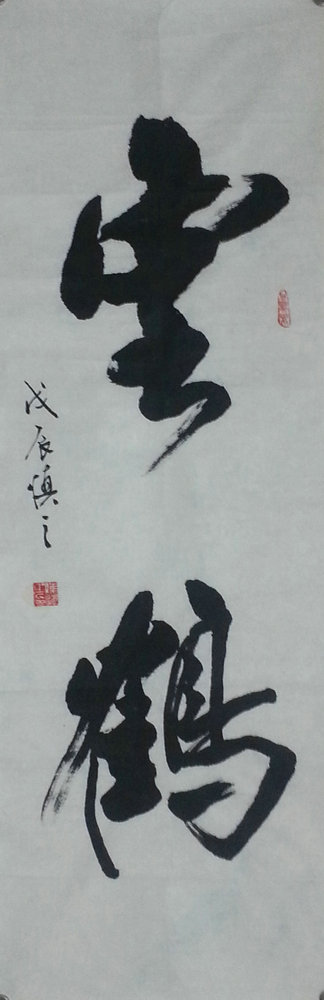 雲鶴
戊辰慎之